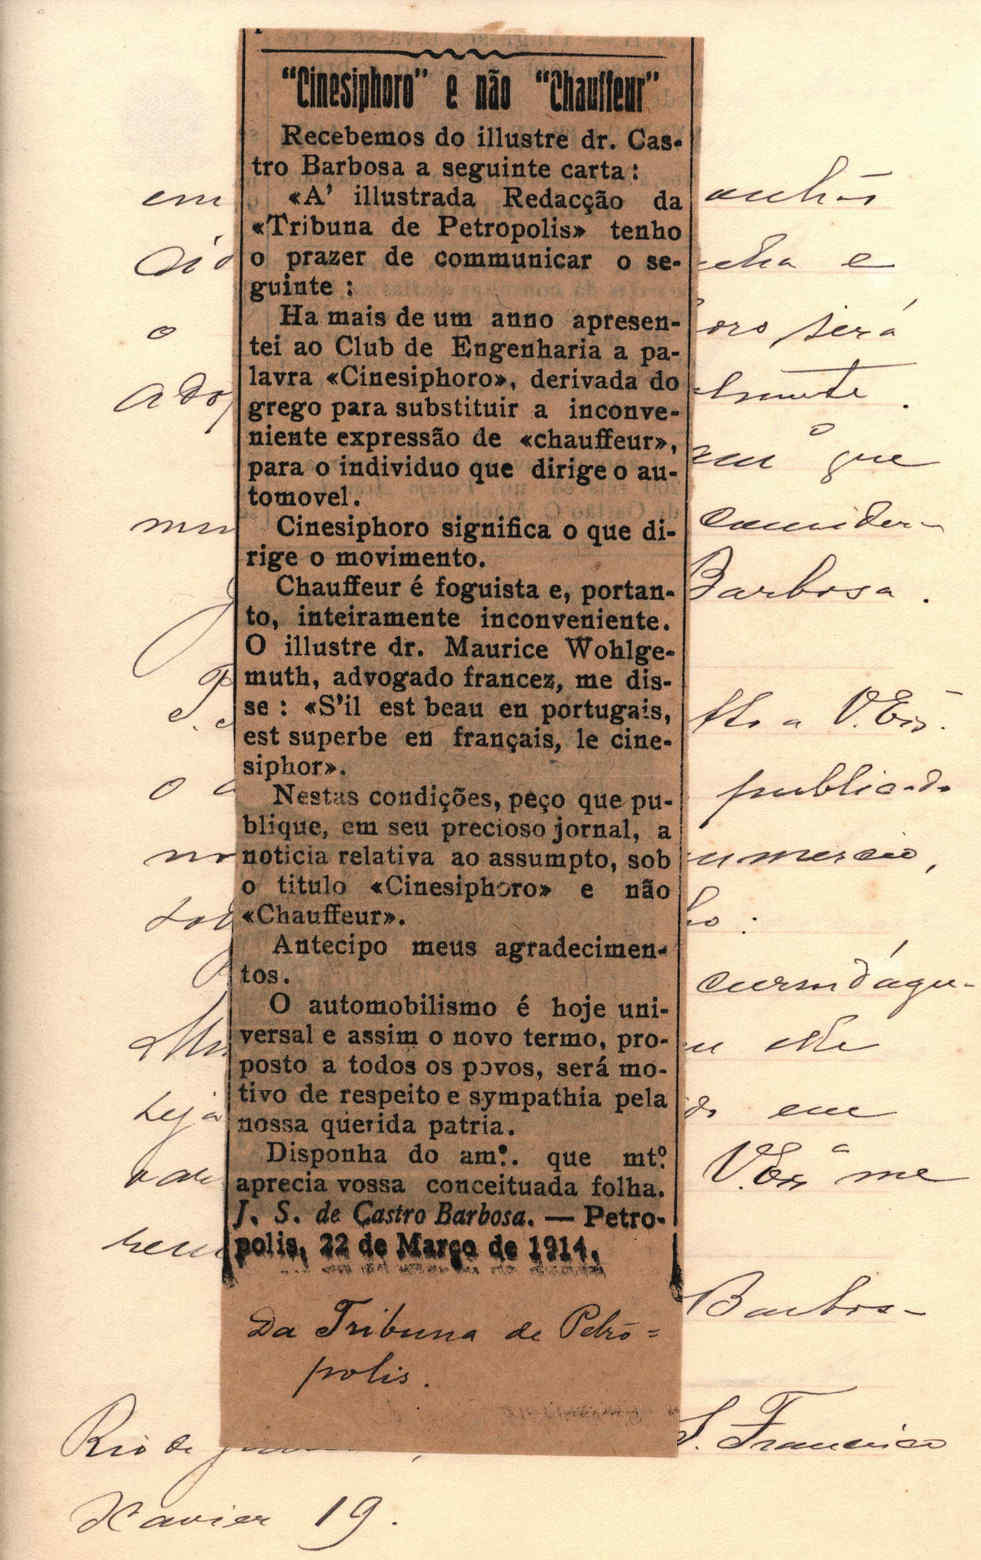 "Cinesiphoro" e não "Chauffeur"
Recebemos do illustre dr. Cas-
tro Barbosa a seguinte carta:
«A' illustrada Redacção da
«Tribuna de Petropolis» tenho
o prazer de communicar o se-
guinte :
Ha mais de um anno apresen-
tei ao Club de Engenharia a pa-
lavra «Cinesiphoro», derivada do
grego para substituir a inconve-
niente expressão de «chauffeur»,
para o individuo que dirige o au-
tomovel.
Cinesiphoro significa o que di-
rige o movimento.
Chauffeur é foguista e, portan-
to, inteiramente inconveniente.
O illustre dr. Maurice Wohlge-
muth, advogado francez, me dis-
se : «S'il est beau en portugais,
est superbe en français, le cine-
siphor».
Nestas condições, peço que pu-
blique, em seu precioso jornal, a
noticia relativa ao assumpto, sob
o titulo «Cinesiphoro» e não
«Chauffeur».
Antecipo meus agradecimen-
tos.
O automobilismo é hoje uni-
versal e assim o novo termo, pro-
posto a todos os povos, será mo-
tivo de respeito e sympathia pela
nossa querida patria.
Disponha do amº. que mtº
aprecia vossa conceituada folha.
J. S. de Castro Barbosa. — Petro-
polis, 22 de Março de 1914.
Da Tribuna de Petró=
polis.
em
e
o será
que
Barbosa.
a V. Exª.
o publicado
no
sob
elle
seja em
V. Exª me
Barbosa
Rio de S. Francisco
Xavier 19.